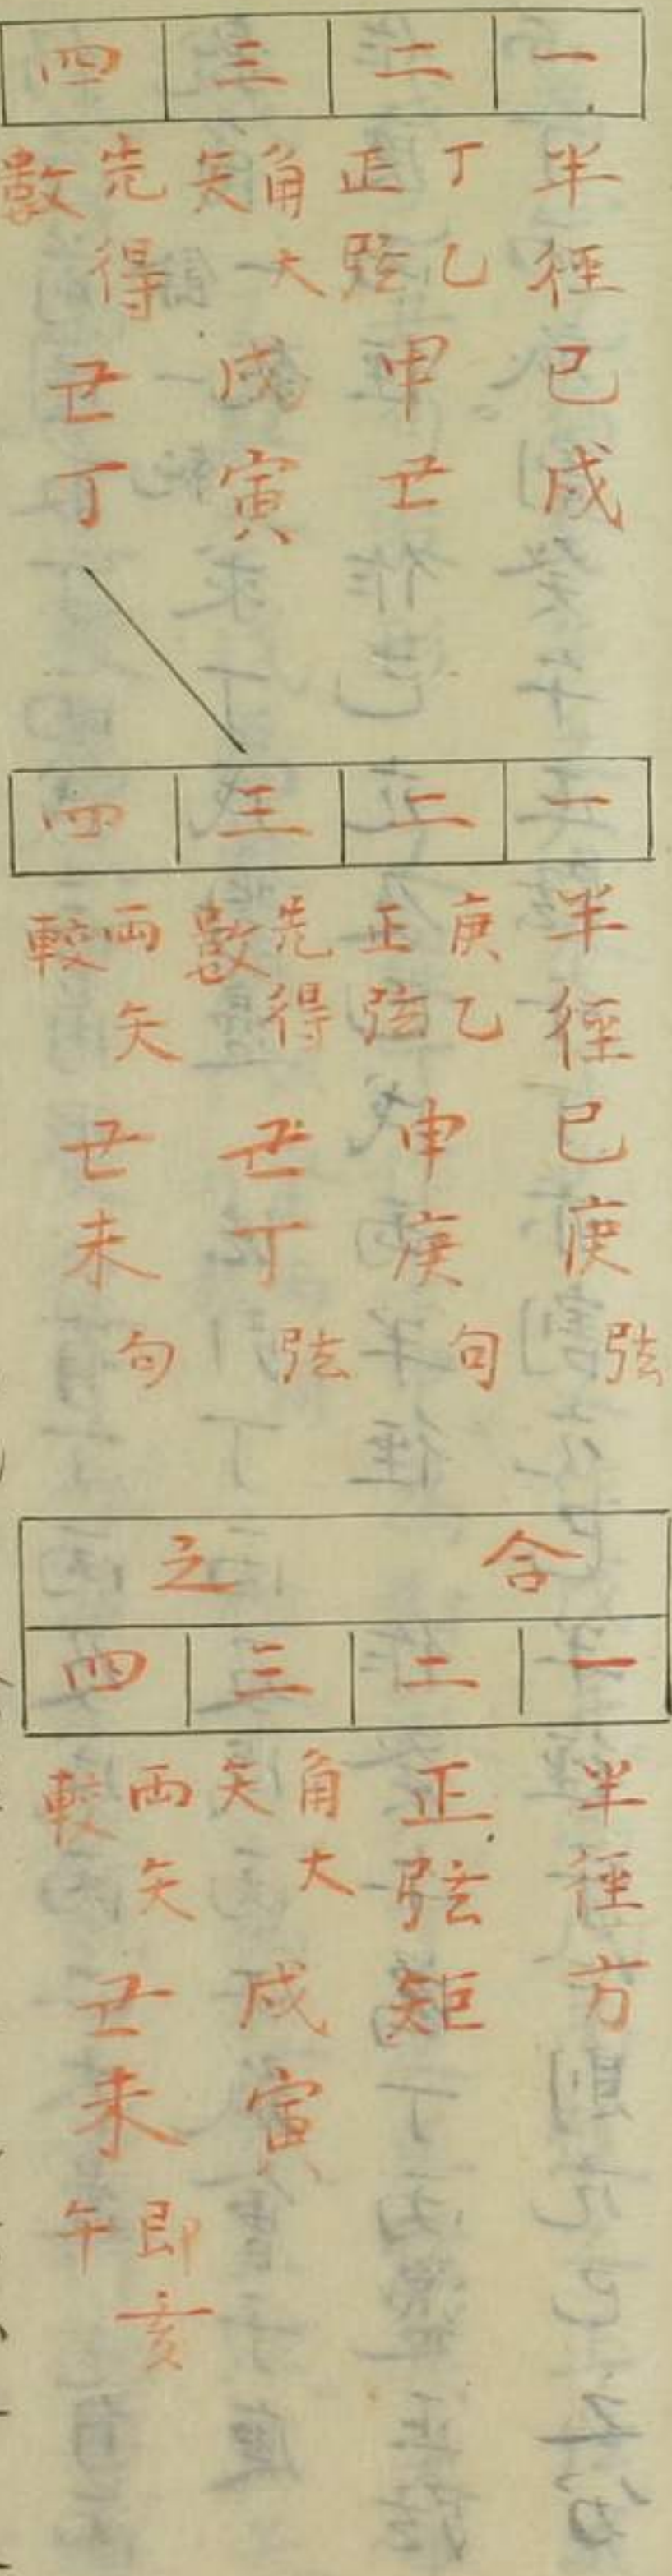 一 二 三 四
半徑己戌
丁乙正弦甲丑
角大矢戌寅
先得數丑丁
一 二 三 四
半徑己庚弦
庚乙正弦申庚句
先得數丑丁弦
兩矢較丑未句
合之
一 二 三 四
半徑方
正弦矩
角大矢戌寅
兩矢較丑未即亥午